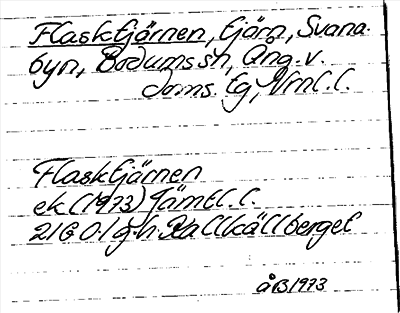 Flasktjärnen, tjärn, Svana-
byn, Bodums sn, Ång. v.
doms. tg, Vrnl. l.
Flasktjärnen
ek (1973) Jämtl. l.
21G 0 g h. Kallkällberget
åB 1973